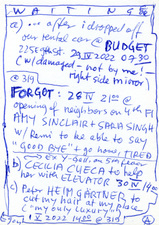 WAITING
a) ... after i dropped off
our rental car @ BUDGET
29 IV 2022 07:30
(w/damaged - not by me!
right side mirror)
@ 319
FORGOT: 28 IV 21°° @
opening of neighbors on 4th Fl
AMY SINCLAIR + SARA SINGH
w/ Remi to be able to say
"GOOD BYE" + go home TIRED
b) CECILIA CHECA to help
her with ELEVATOR 30 IV 19°°
c) Peter HEIMGARTNER to
cut my hair at my place
(- my only luxury!)
1 V 2022 14°° @ 319